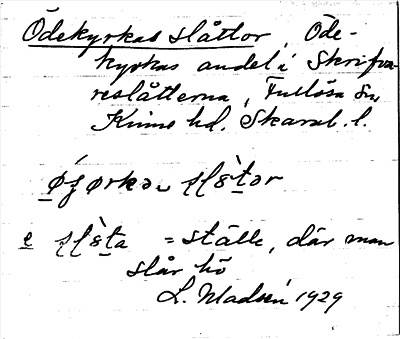 Ödekyrkas slåttor, Öde-
kyrkas andel i Skrifva-
reslåtterna, Fullösa sn,
Kinne hd. Skarab. l.
slåtor
e = ställe, där man
slår hö
L. Madsén 1929